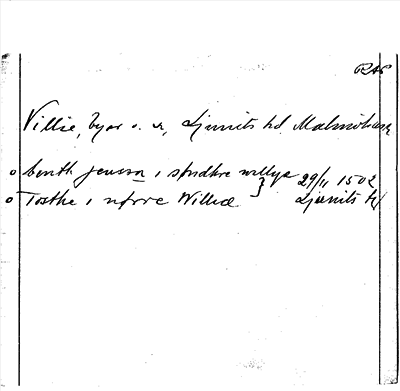 RAP
Villie, byar o. sn, Ljunits hd Malmöhus
o benth jenssøn i sødhre willye } 29/11 1502
o Tosthe i nørre Williæ Ljunits hd